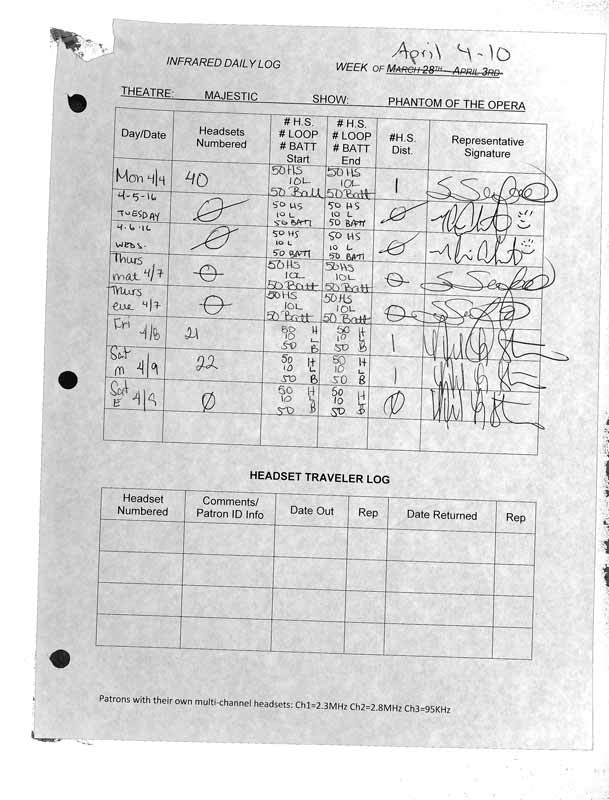 April 4-10
INFRARED DAILY LOG WEEK OF MARCH 28TH - APRIL 3RD
THEATRE: MAJESTIC SHOW: PHANTOM OF THE OPERA
Day/Date Headsets Numbered # H.S. # LOOP # BATT Start # H.S. # LOOP # BATT End #H.S. Dist. Representative Signature
Mon 4/4 40 50 HS 10L 50 Batt 50 HS 10L 50 Batt 1
4-5-16 TUESDAY Ø 50 HS 10 L 50 BATT 50 HS 10 L 50 BATT Ø
4.6.16 WEDS. Ø 50 HS 10 L 50 BATT 50 HS 10 L 50 BATT Ø
Thurs mat 4/7 Ø 50 HS 10L 50 Batt 50 HS 10L 50 Batt Ø
Thurs eve 4/7 Ø 50 HS 10L 50 Batt 50 HS 10L 50 Batt Ø
Fri 4/8 21 50 H 10 L 50 B 50 H 10 L 50 B 1
Sat m 4/9 22 50 H 10 L 50 B 50 H 10 L 50 B 1
Sat E 4/9 Ø 50 H 10 L 50 B 50 H 10 L 50 B Ø
HEADSET TRAVELER LOG
Headset Numbered Comments/ Patron ID Info Date Out Rep Date Returned Rep
Patrons with their own multi-channel headsets: Ch1=2.3MHz Ch2=2.8MHz Ch3=95KHz